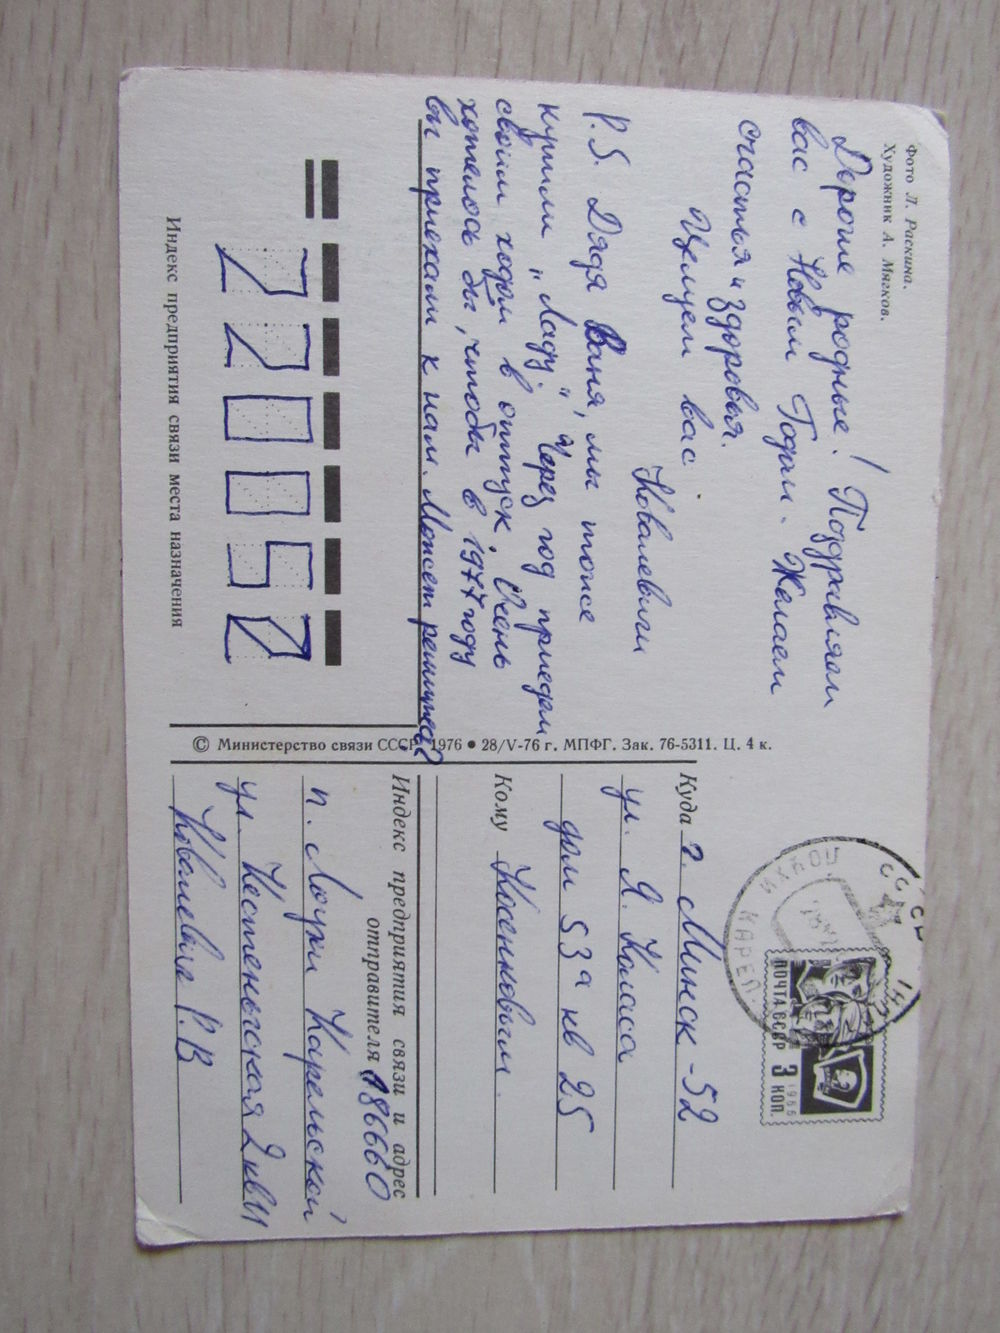 Фото Л. Раскина.
Художник А. Мягков.
Дорогие родные! Поздравляем
вас с Новым Годом. Желаем
счастья и здоровья.
Целуем вас
Ковалевичи
P.S. Дядя Ваня, мы тоже
купили „Ладу". Через год приедем
своим ходом в отпуск. Очень
хотелось бы, чтобы в 1977 году
вы приехали к нам. Может решитесь?
220052
Индекс предприятия связи места назначения
© Министерство связи СССР. 1976 • 28/V-76 г. МПФГ. Зак. 76-5311. Ц. 4 к.
ПОЧТА СССР 3 КОП.
1966
ЛОУХИ КАРЕЛ.
Куда г. Минск-52
ул. Я. Коласа
дом 53а кв 25
Кому Косенковым
Индекс предприятия связи и адрес
отправителя 186660
п. Лоухи Карельской
ул. Кестеньгская 2 кв 11
Ковалевич Р.В